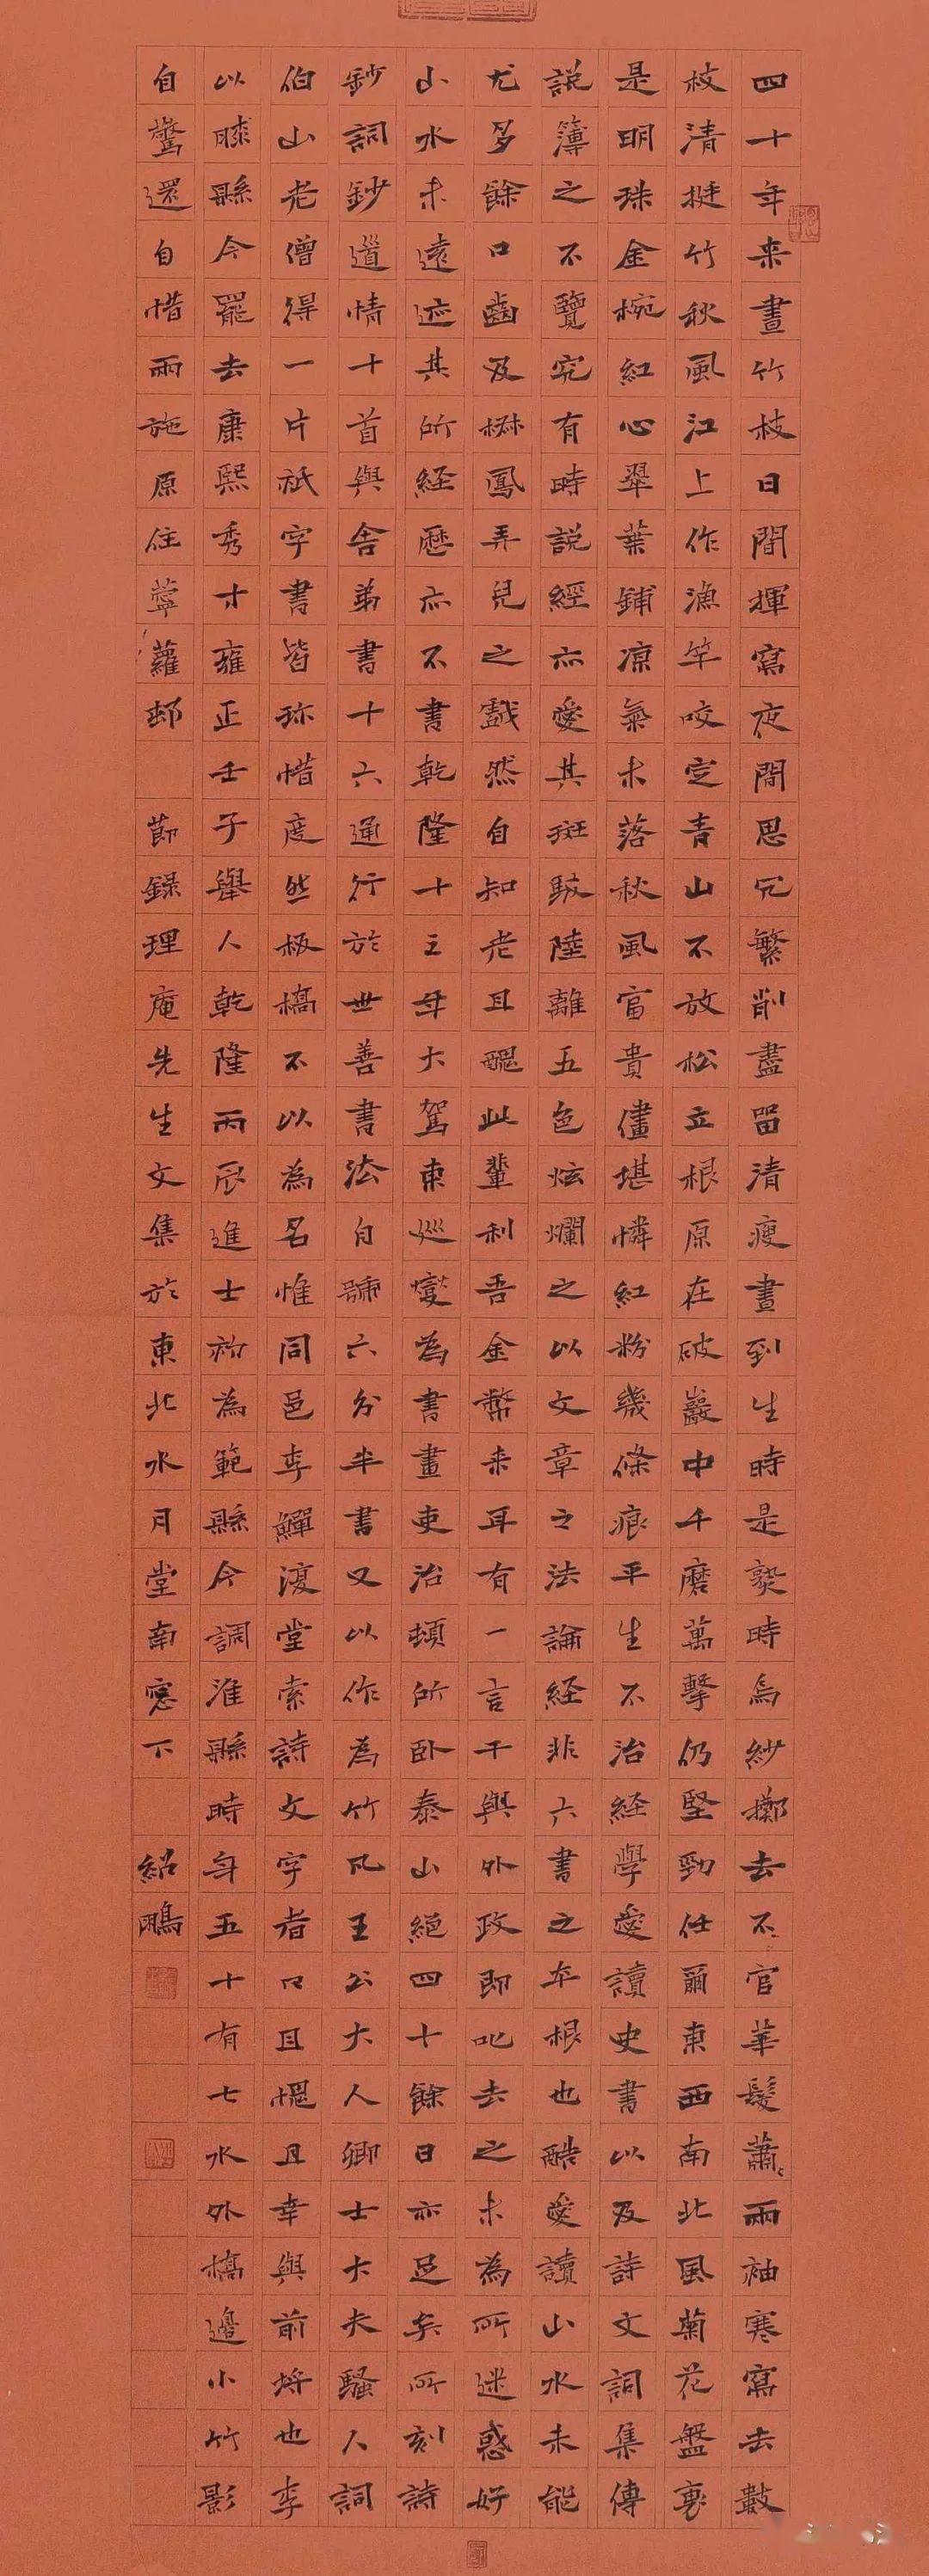 四十年来畫竹枝日間揮寫夜間思冗繁削盡留清瘦畫到生時是熟時烏紗擲去不官華髮蕭兩袖寒寫去數
枝清挺竹秋風江上作漁竿咬定青山不放松立根原在破巖中千磨萬擊仍堅勁任爾東西南北風菊花盤裏
是明珠金椀紅心翠葉鋪凉氣未落秋風富貴儘堪憐紅粉幾條痕平生不治經學愛讀史書以及詩文詞集傳
說簿之不覽究有時說經亦愛其斑駁陸離五色炫爛之以文章之法論經非六書之本根也酷愛讀山水未能
尤多餘口齒及椒鳳弄兒之戲然自知老且醜此輩利吾金幣来耳有一言干與外政即叱去之未為所迷惑好
山水未遠迹其所經歷亦不書乾隆十三年大駕東巡燮為書畫吏治頓所卧泰山絕四十餘日亦足矣所刻詩
鈔詞鈔道情十首與舍弟書十六通行於世善書法自號六分半書又以作為竹凡王公大人卿士大夫騷人詞
伯山老僧得一片祇字書皆珎惜度然板橋不以為名惟同邑李鱓復堂索詩文字者口且慍且幸與前將也李
以膝縣今罷去康熙秀才雍正壬子舉人乾隆丙辰進士初為範縣今調濰縣時年五十有七水外橋邊小竹影
自驚還自惜雨施原住薴蘿邨 節錄理庵先生文集於東北水月堂南窓下 紹鵬